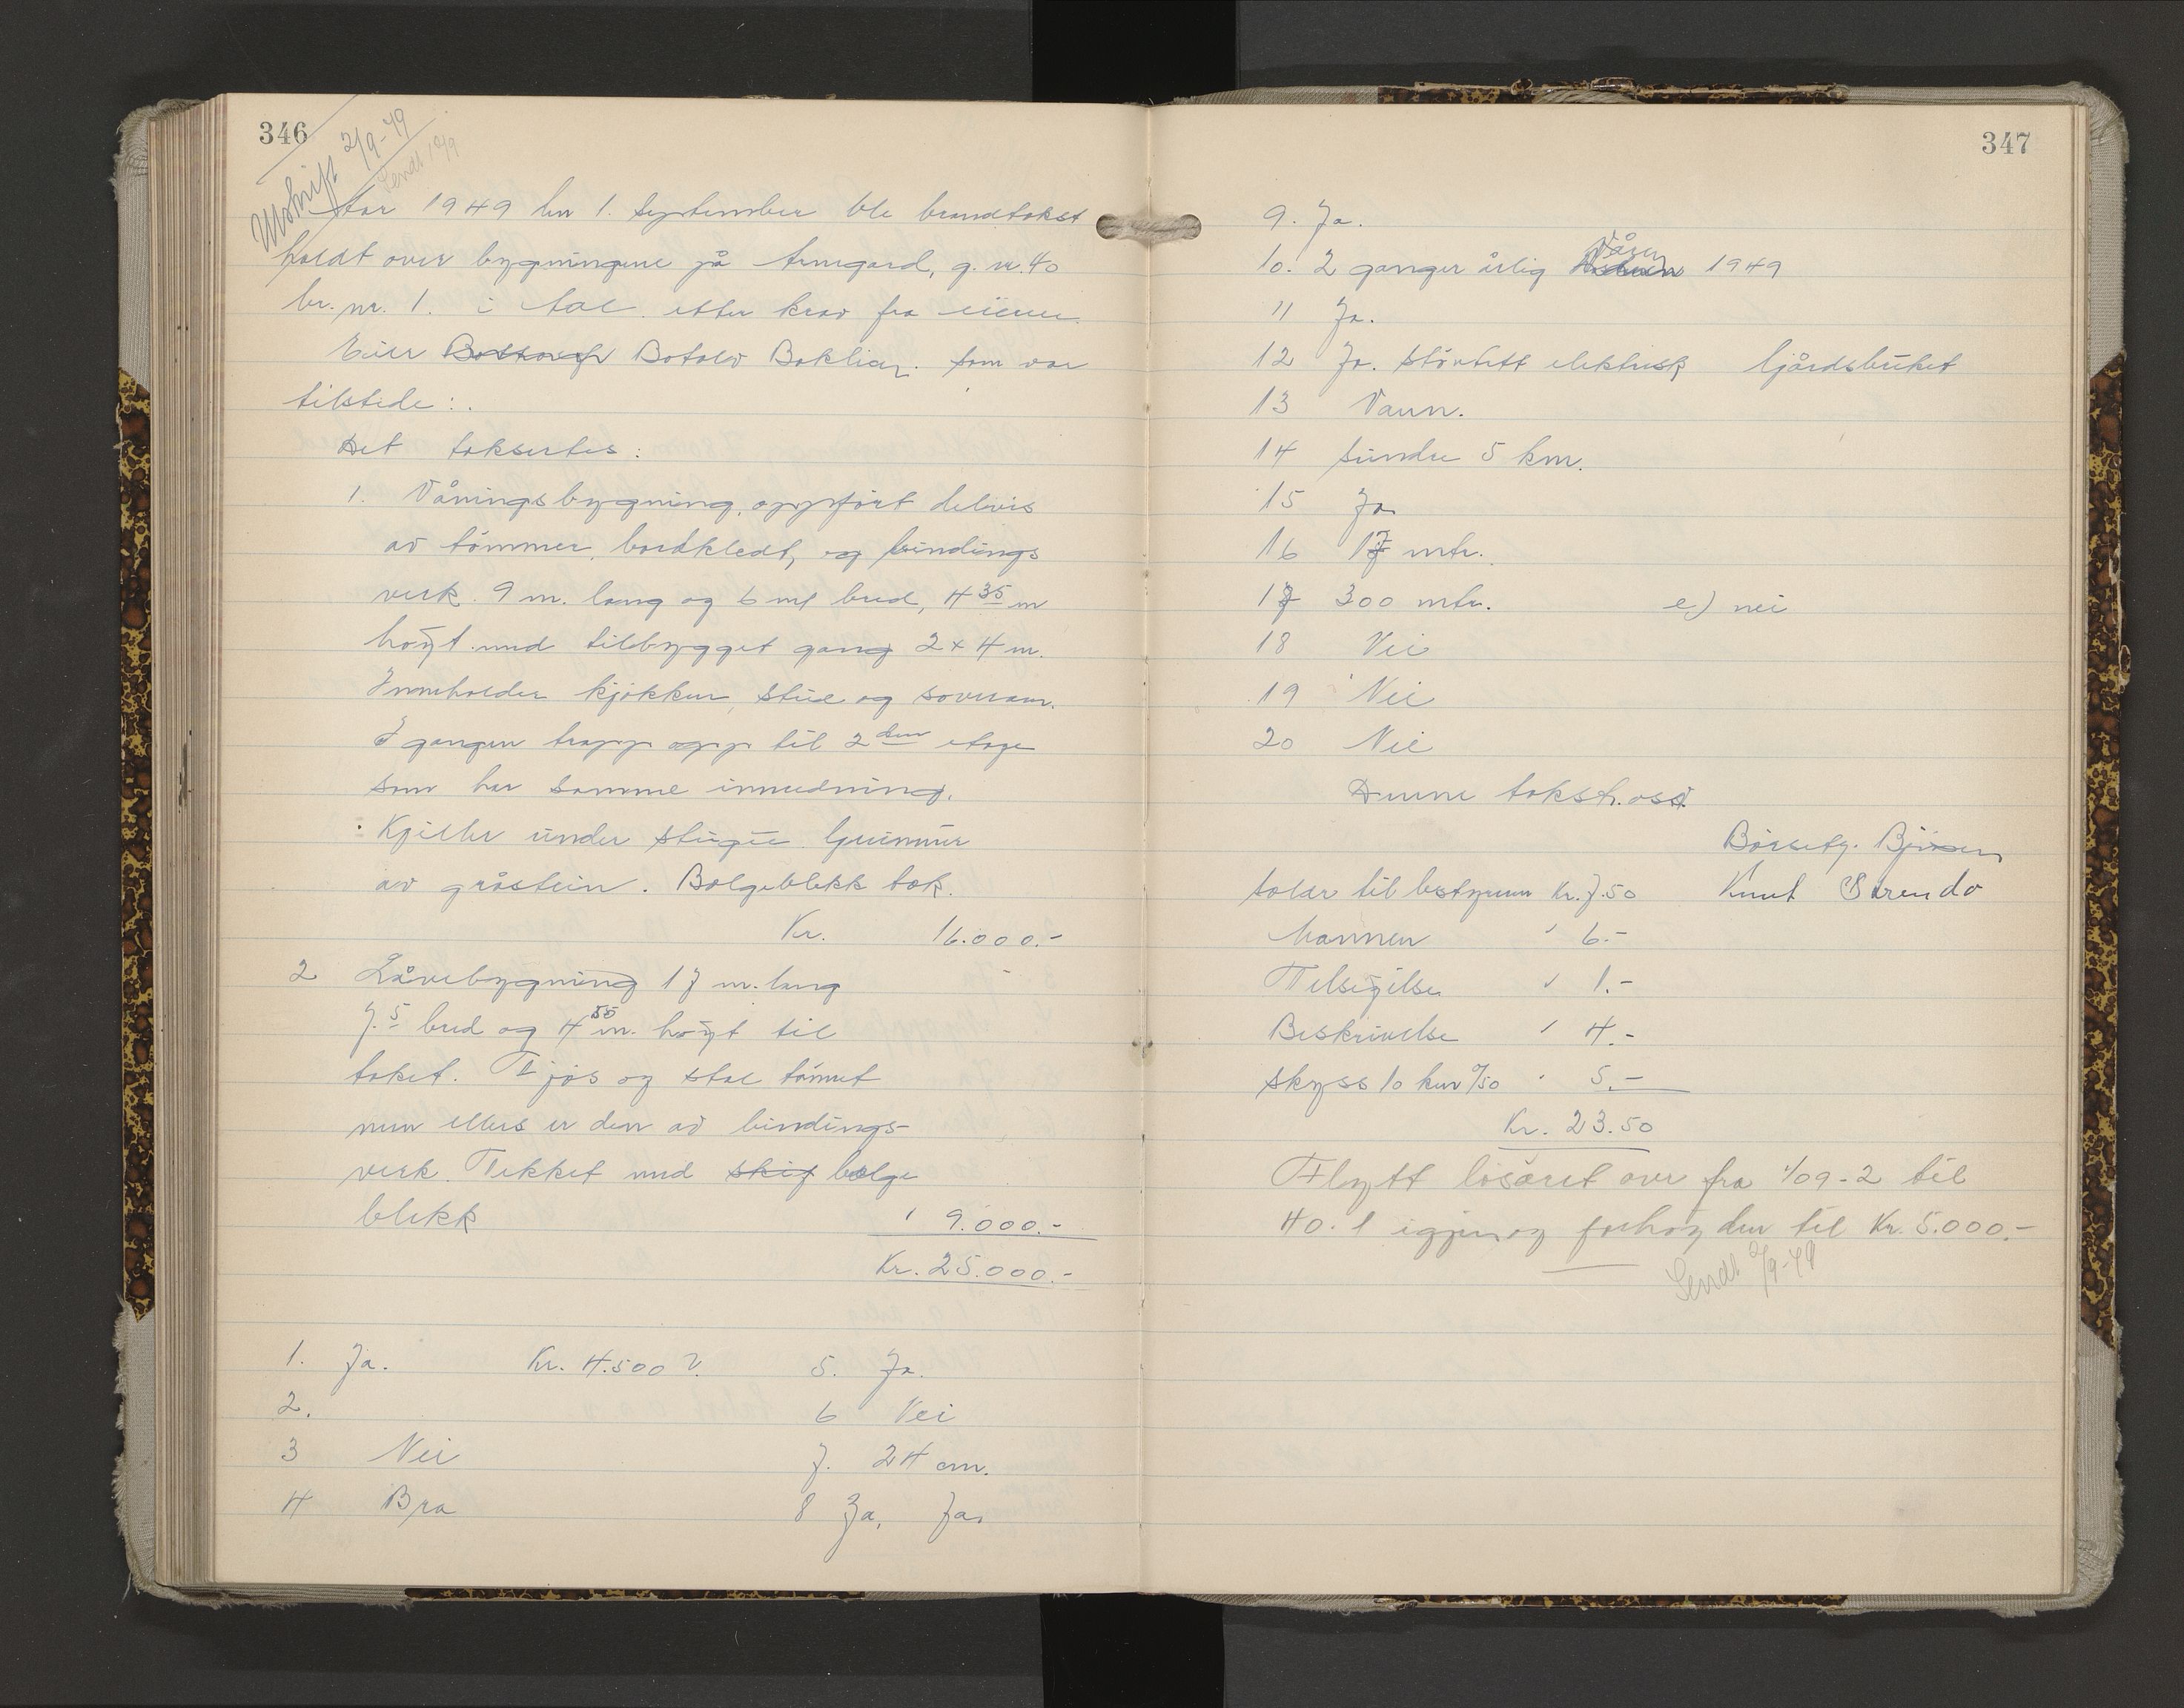 346
Utskrift 2/9-49
Sendt 10/9
År 1949 den 1. september ble brandtakst
holdt over bygningene på g. nr. 40
br. nr. 1. i Aal etter krav fra eieren.
Eier Botolv Baklien. som var
tilstede:.
Det taksertes:
1. Våningsbygning, oppført delvis
av tømmer, bordkledt, og bindings
verk. 9 m. lang og 6 m bred, 4 35 m
høyt. med tilbygget gang 2 x 4 m.
Innholder kjøkken, stue og soverom.
I gangen trapp opp til 2 den etage
som har samme innredning.
Kjeller under stugu. Grunnmur
av gråstein. Bølgeblekk tak.
Kr. 16.000.-
2 Låvebygning 17 m. lang
7.5 bred og 4 55 m. høyt til
taket. Fjøs og stal tømret
men ellers er den av bindings-
verk. Tekket med skif bølge
blekk
" 9.000.-
Kr. 25.000.-
1. Ja. Kr. 4.500 ?.
2.
3 Nei
4 Bra
5. Ja.
6 Nei
7. 24 cm.
8 Ja, Ja.
347
9. Ja.
10. 2 ganger årlig Våren 1949
11 Ja.
12 Ja. støvtett elektrisk Gjårdsbruket
13 Vann.
14 5 km.
15 Ja
16 17 mtr.
17 300 mtr. e) nei
18 Nei
19 Nei
20 Nei
Denne takstr. oss.
Knut
Salær til bestyreren Kr. 7.50
Mannen " 6.-
Tilsigelse " 1.-
Beskrivelse " 4.-
Skyss 10 km a/50 " 5.-
Kr. 23.50
Flytt løsøret over fra 109-2 til
40.1 igjen og forhøy den til Kr. 5.000.-
Sendt 2/9-49